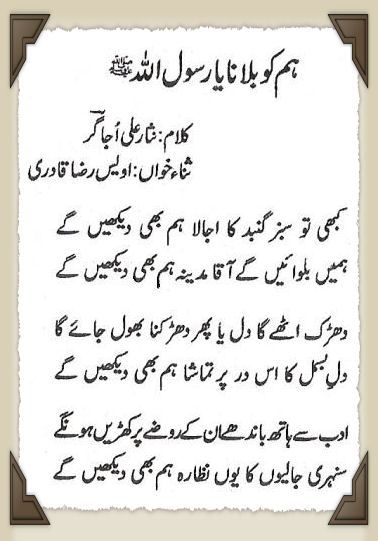 ہم کو بلانا یا رسول اللہ ﷺ
کلام: نثار علی اُجاگر
ثناء خواں: اویس رضا قادری
کبھی تو سبز گنبد کا اجالا ہم بھی دیکھیں گے
ہمیں بلوائیں گے آقا مدینہ ہم بھی دیکھیں گے
دھڑک اٹھے گا دل یا پھر دھڑکنا بھول جائے گا
دلِ بسمل کا اس در پر تماشا ہم بھی دیکھیں گے
ادب سے ہاتھ باندھے ان کے روضے پر کھڑیں ہونگے
سنہری جالیوں کا یوں نظارہ ہم بھی دیکھیں گے